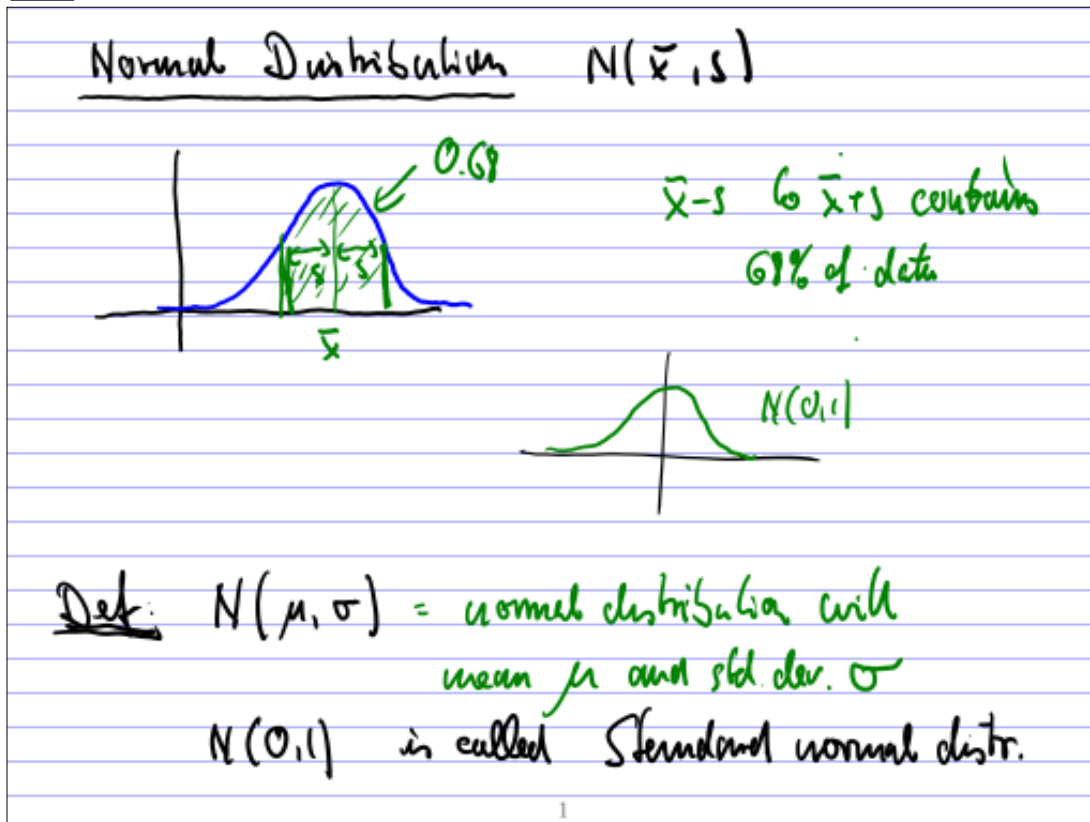 Normal Distribution N(x̄, s)
0.68
x̄-s to x̄+s contains
68% of data
s s
x̄
N(0,1)
Def: N(μ, σ) = normal distribution with
mean μ and std. dev. σ
N(0,1) is called Standard normal distr.
1